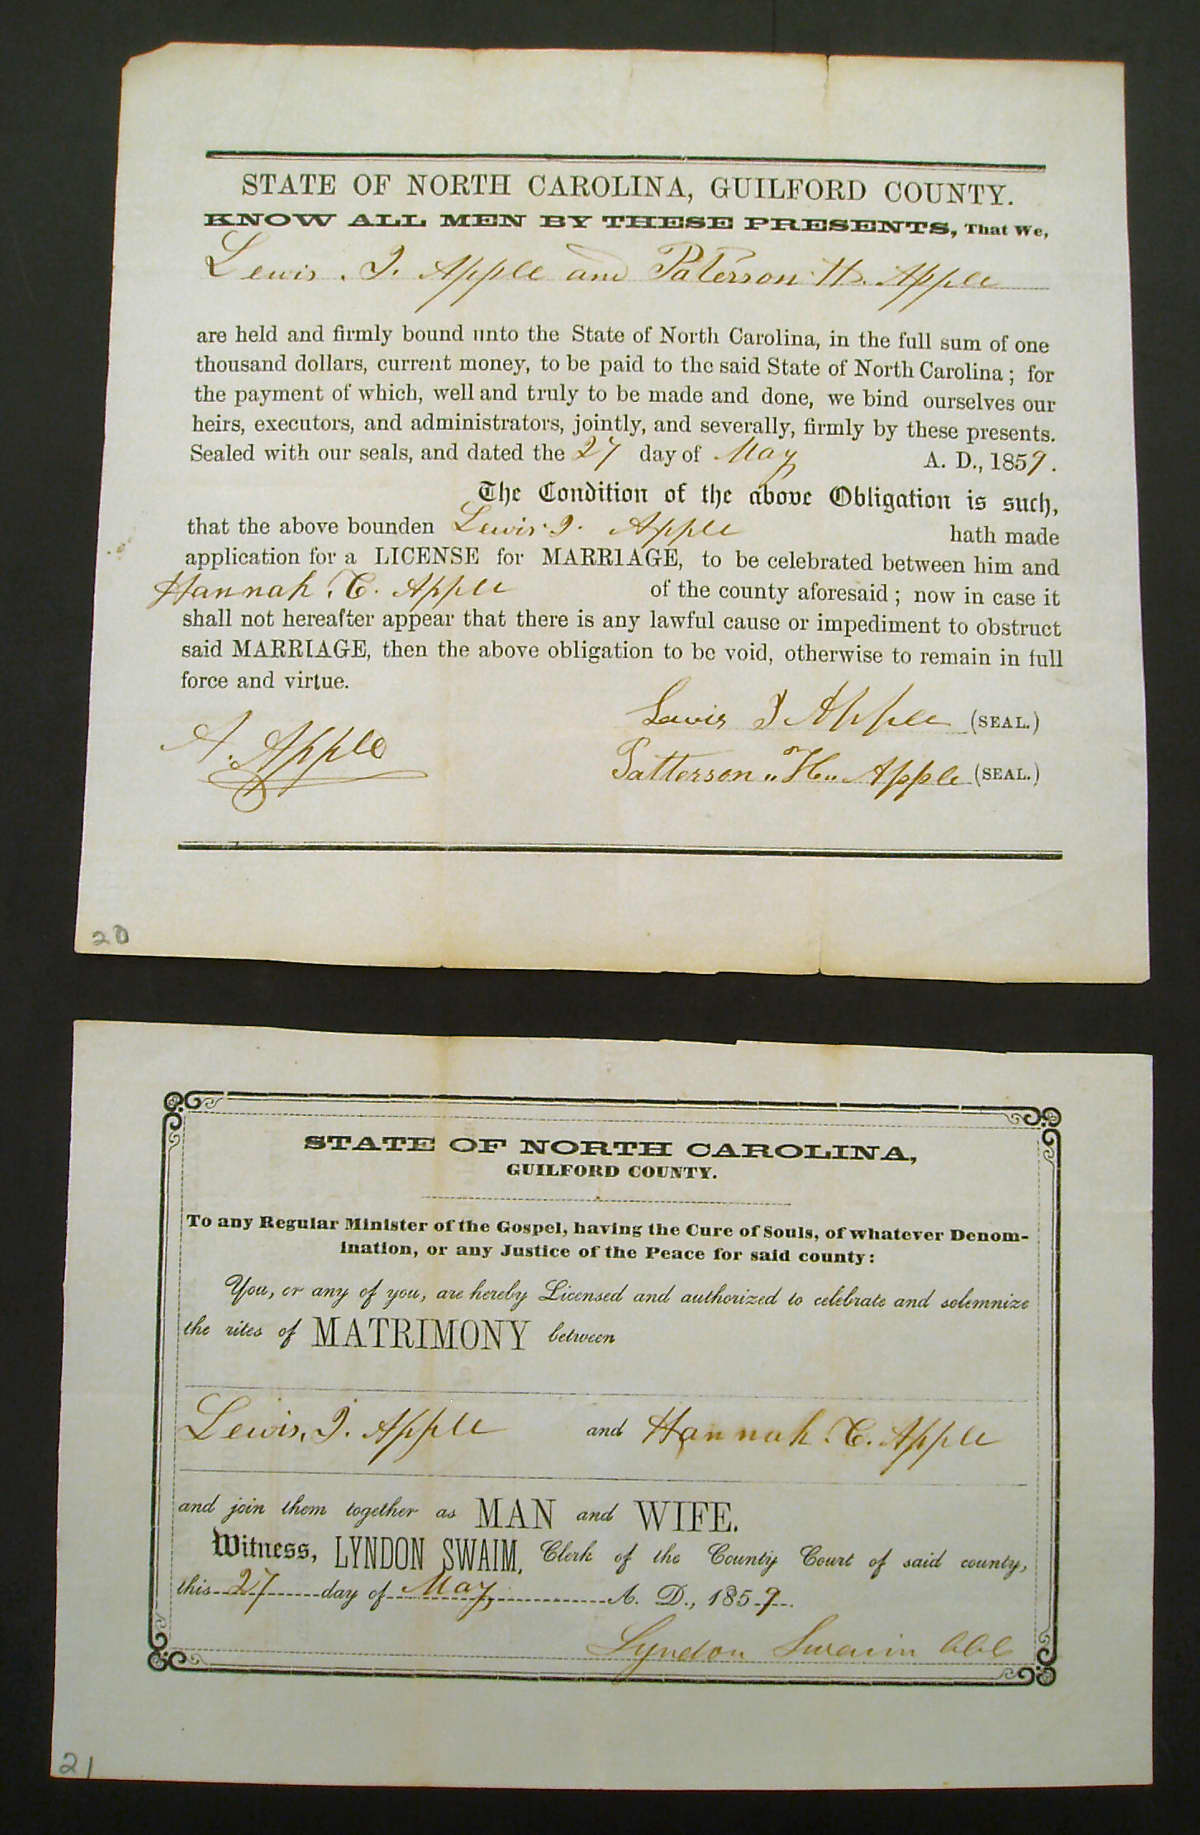 STATE OF NORTH CAROLINA, GUILFORD COUNTY.
KNOW ALL MEN BY THESE PRESENTS, That We,
Lewis. I. Apple and Paterson H. Apple
are held and firmly bound unto the State of North Carolina, in the full sum of one
thousand dollars, current money, to be paid to the said State of North Carolina; for
the payment of which, well and truly to be made and done, we bind ourselves our
heirs, executors, and administrators, jointly, and severally, firmly by these presents.
Sealed with our seals, and dated the 27 day of May A. D., 1859.
The Condition of the above Obligation is such,
that the above bounden Lewis I. Apple hath made
application for a LICENSE for MARRIAGE, to be celebrated between him and
Hannah. C. Apple of the county aforesaid; now in case it
shall not hereafter appear that there is any lawful cause or impediment to obstruct
said MARRIAGE, then the above obligation to be void, otherwise to remain in full
force and virtue.
Lewis I Apple (SEAL.)
A. Apple
Patterson "H" Apple (SEAL.)
20
STATE OF NORTH CAROLINA,
GUILFORD COUNTY.
To any Regular Minister of the Gospel, having the Cure of Souls, of whatever Denom-
ination, or any Justice of the Peace for said county:
You, or any of you, are hereby Licensed and authorized to celebrate and solemnize
the rites of MATRIMONY between
Lewis, I. Apple and Hannah. C. Apple
and join them together as MAN and WIFE.
Witness, LYNDON SWAIM, Clerk of the County Court of said county,
this 27 day of May A. D., 1859.
Lyndon Swaim
21